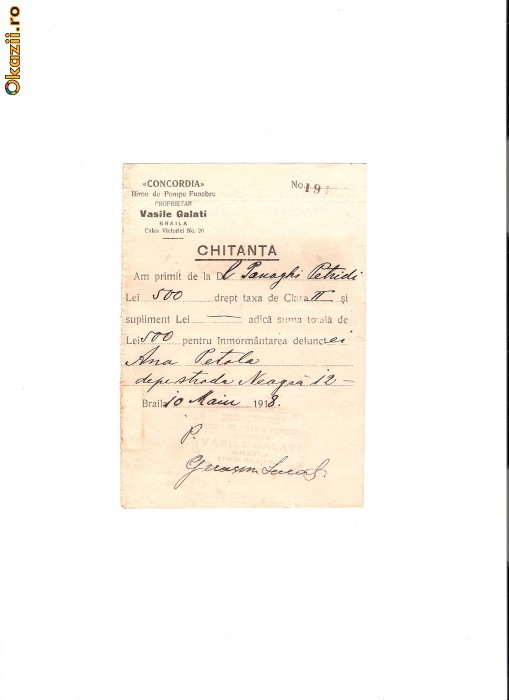 Okazii.ro
«CONCORDIA»
Birou de Pompe Funebre
PROPRIETAR
Vasile Galati
BRAILA
Calea Victoriei No. 20
No. 191
CHITANTA
Am primit de la Dl Panaghi Petridi
Lei 500 drept taxa de Clasa II și
supliment Lei — adică suma totală de
Lei 500 pentru înmormântarea defunctei
Ana Petala
depe strada Neagră 12 —
Braila 10 Maiu 1918.
P.
VASILE GALATI
BRAILA
Gerasim